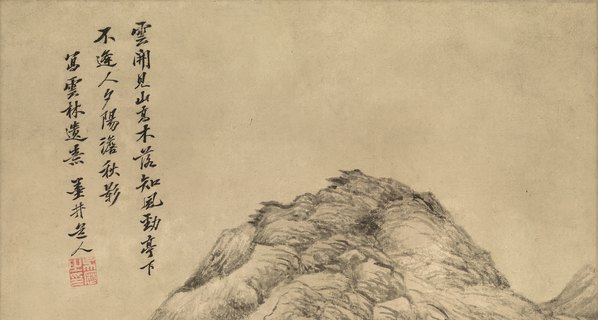 雲開見山高木落知風勁亭下
不逢人夕陽澹秋影
寫雲林遺意墨井道人